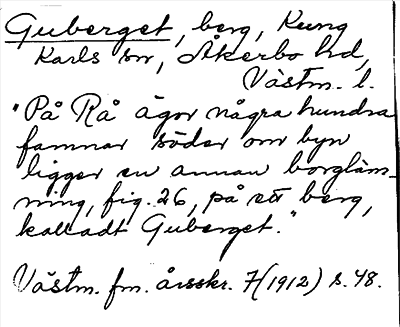 Guberget, berg, Kung
Karls sn, Åkerbo hd,
Västm. l.
"På Rå ägor några hundra
famnar söder om byn
ligger en annan borgläm-
ning, fig. 26, på ett berg,
kalladt Guberget."
Västm. fm. årsskr. 7(1912) s. 48.